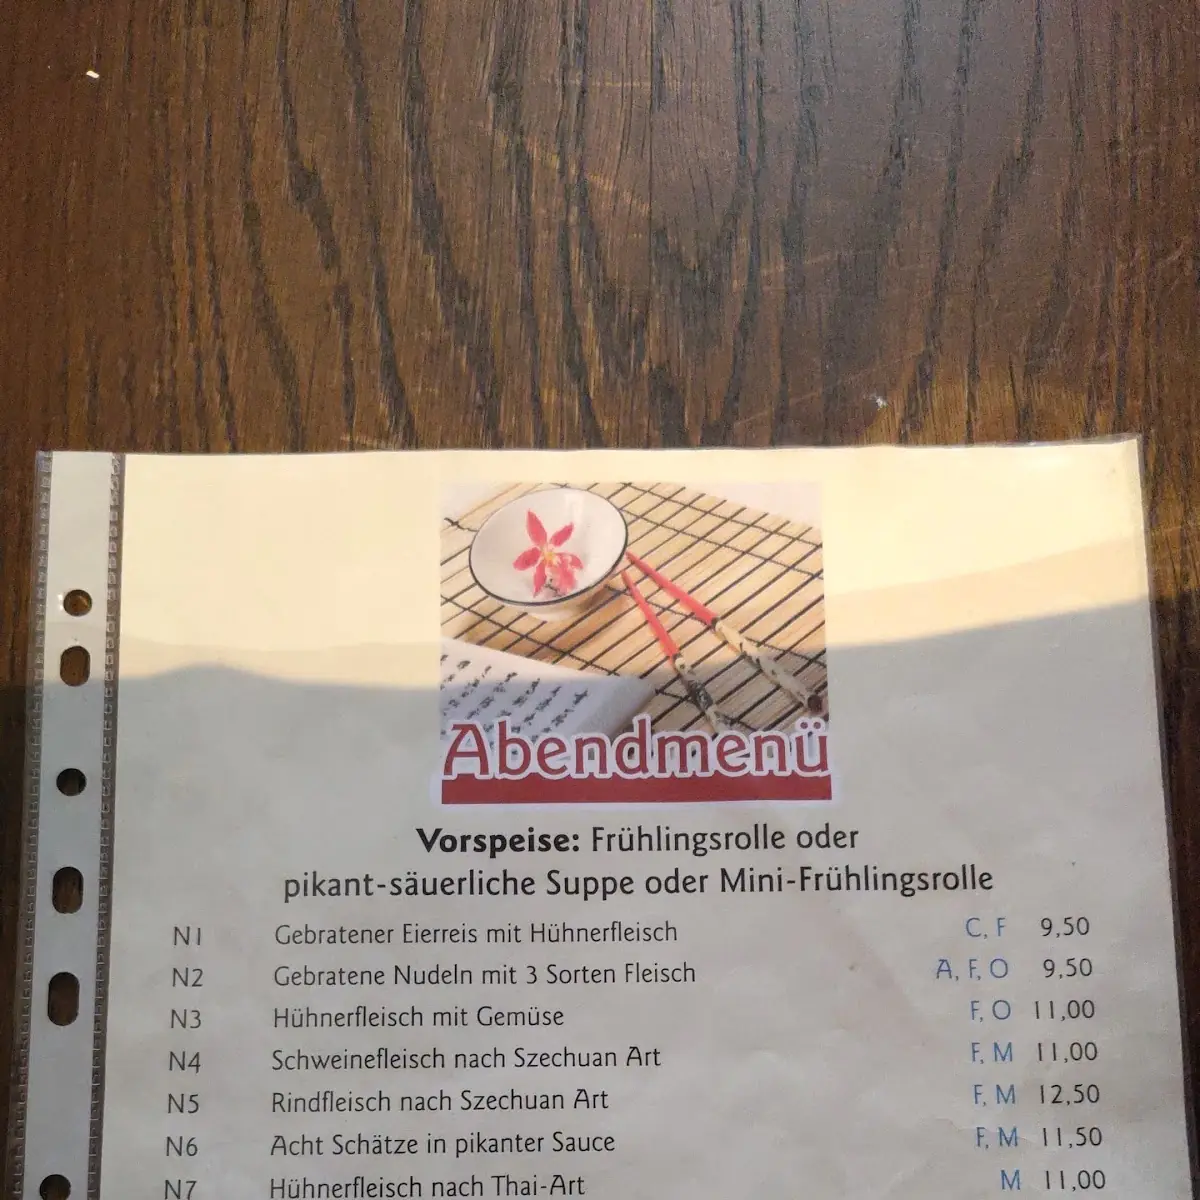 Abendmenü
Vorspeise: Frühlingsrolle oder
pikant-säuerliche Suppe oder Mini-Frühlingsrolle
N1 Gebratener Eierreis mit Hühnerfleisch C, F 9,50
N2 Gebratene Nudeln mit 3 Sorten Fleisch A, F, O 9,50
N3 Hühnerfleisch mit Gemüse F, O 11,00
N4 Schweinefleisch nach Szechuan Art F, M 11,00
N5 Rindfleisch nach Szechuan Art F, M 12,50
N6 Acht Schätze in pikanter Sauce F, M 11,50
N7 Hühnerfleisch nach Thai-Art M 11,00